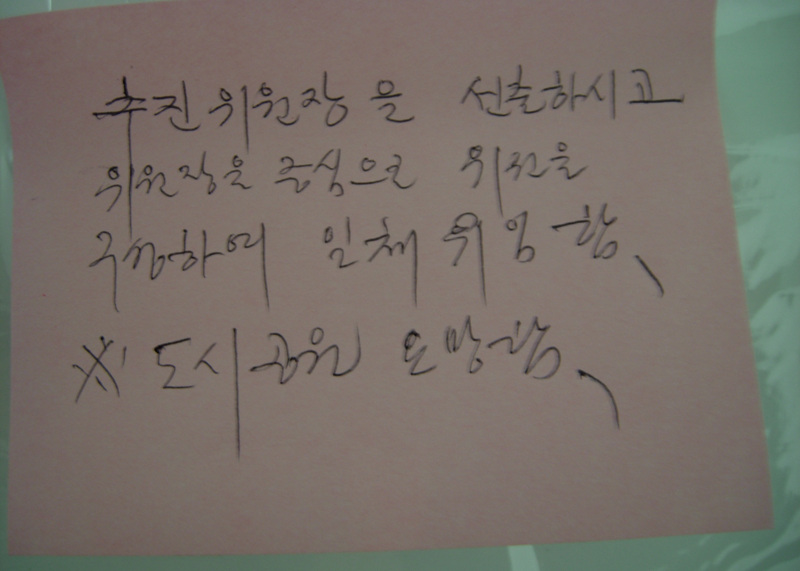 추진위원장을 선출하시고
위원장을 중심으로 위원을
구성하여 일체 위임함
※ 도시공원 요망함